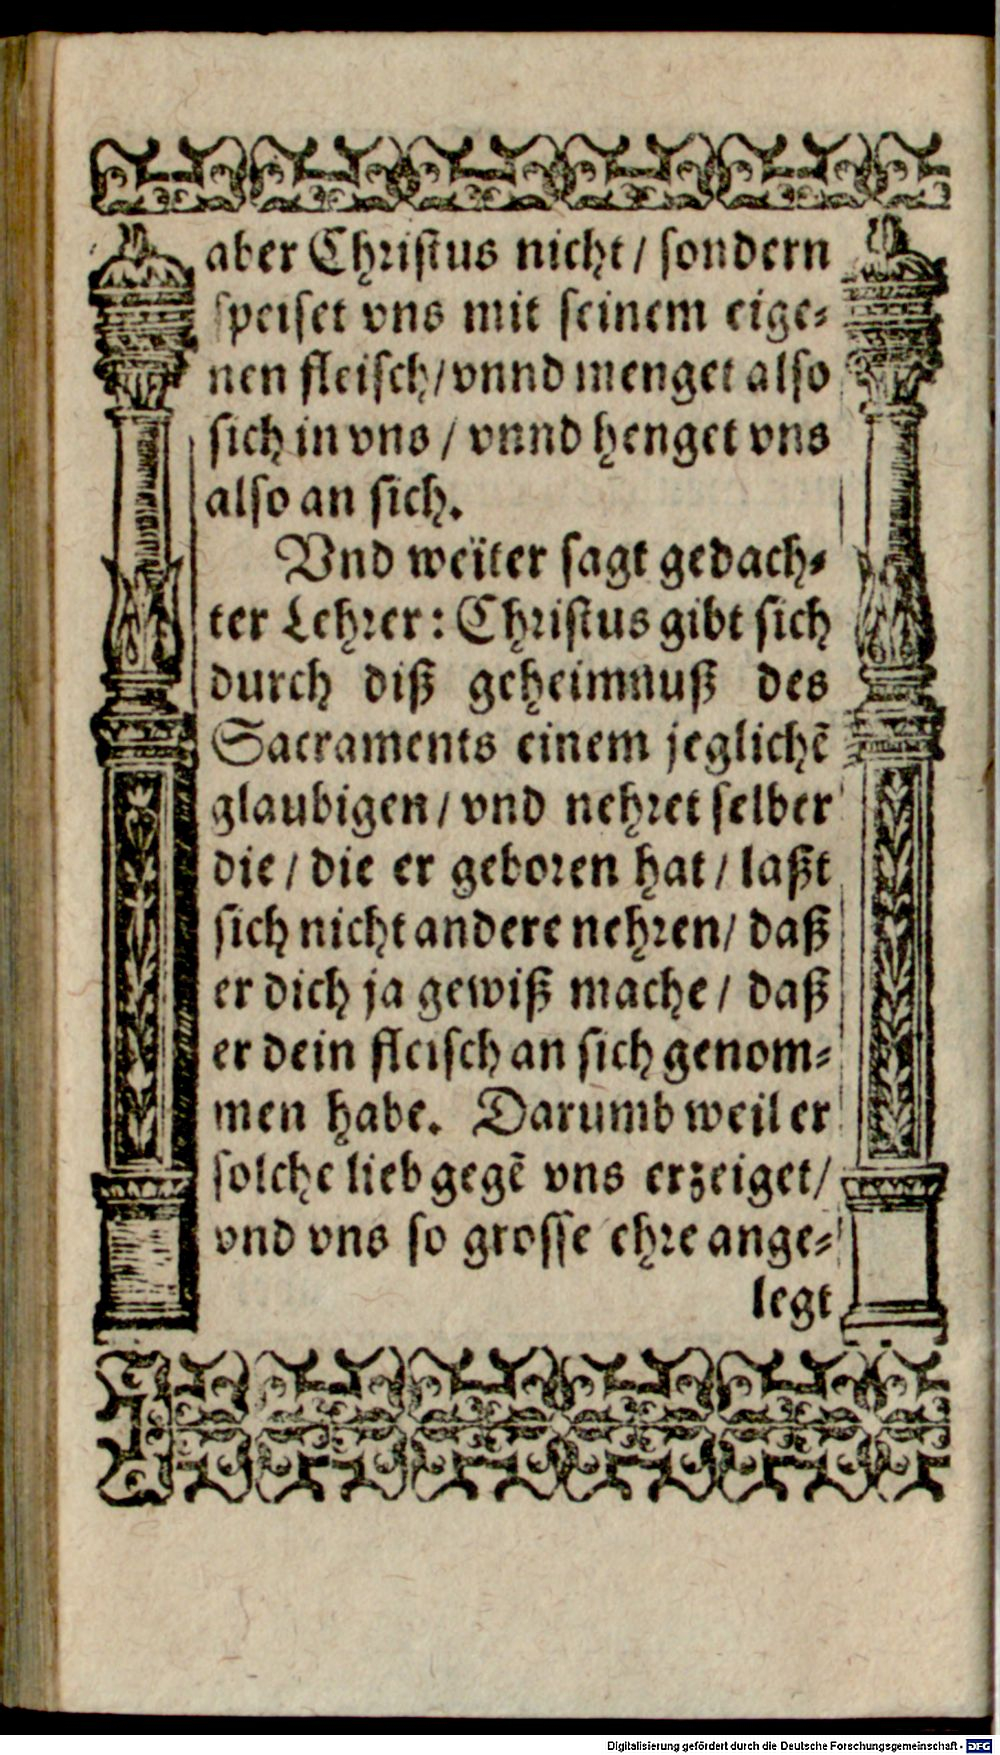 aber Christus nicht / sondern
speiset vns mit seinem eige⸗
nen fleisch / vnnd menget also
sich in vns / vnnd henget vns
also an sich.
Vnd weiter sagt gedach⸗
ter Lehrer: Christus gibt sich
durch diß geheimnuß des
Sacraments einem jeglichē
glaubigen / vnd nehret selber
die / die er geboren hat / laßt
sich nicht andere nehren / daß
er dich ja gewiß mache / daß
er dein fleisch an sich genom⸗
men habe. Darumb weil er
solche lieb gegē vns erzeiget /
vnd vns so grosse ehre ange⸗
legt
Digitalisierung gefördert durch die Deutsche Forschungsgemeinschaft - DFG